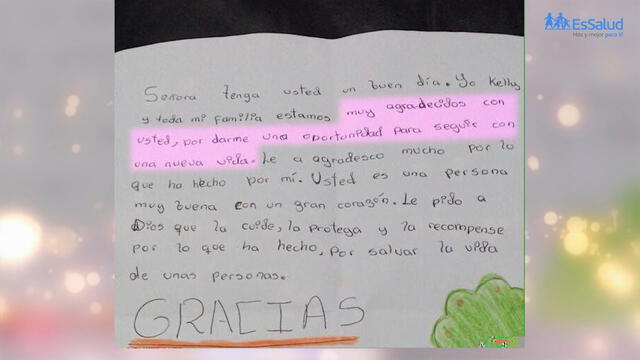 EsSalud
Más y mejor para ti
Señora tenga usted un buen día. Yo Kelly
y toda mi familia estamos muy agradecidos con
usted, por darme una oportunidad para seguir con
una nueva vida. Le a agradesco mucho por lo
que ha hecho por mí. Usted es una persona
muy buena con un gran corazón. Le pido a
Dios que la cuide, la protega y la recompense
por lo que ha hecho, por salvar la vida
de unas personas.
GRACIAS